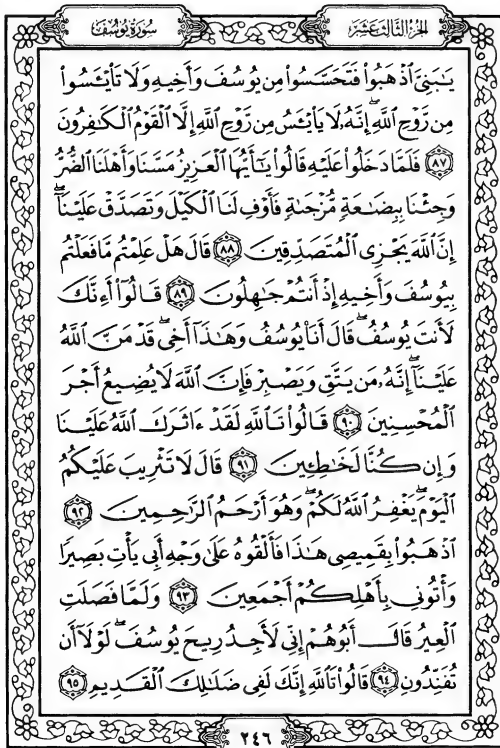 سُورَةُ يُوسُفَ
الجُزْءُ الثَّالِثَ عَشَرَ
يَٰبَنِىَّ ٱذْهَبُوا۟ فَتَحَسَّسُوا۟ مِن يُوسُفَ وَأَخِيهِ وَلَا تَا۟يْـَٔسُوا۟
مِن رَّوْحِ ٱللَّهِ ۖ إِنَّهُۥ لَا يَا۟يْـَٔسُ مِن رَّوْحِ ٱللَّهِ إِلَّا ٱلْقَوْمُ ٱلْكَٰفِرُونَ
﴿٨٧﴾ فَلَمَّا دَخَلُوا۟ عَلَيْهِ قَالُوا۟ يَٰٓأَيُّهَا ٱلْعَزِيزُ مَسَّنَا وَأَهْلَنَا ٱلضُّرُّ
وَجِئْنَا بِبِضَٰعَةٍ مُّزْجَىٰةٍ فَأَوْفِ لَنَا ٱلْكَيْلَ وَتَصَدَّقْ عَلَيْنَآ ۖ
إِنَّ ٱللَّهَ يَجْزِى ٱلْمُتَصَدِّقِينَ ﴿٨٨﴾ قَالَ هَلْ عَلِمْتُم مَّا فَعَلْتُم
بِيُوسُفَ وَأَخِيهِ إِذْ أَنتُمْ جَٰهِلُونَ ﴿٨٩﴾ قَالُوٓا۟ أَءِنَّكَ
لَأَنتَ يُوسُفُ ۖ قَالَ أَنَا۠ يُوسُفُ وَهَٰذَآ أَخِى ۖ قَدْ مَنَّ ٱللَّهُ
عَلَيْنَآ ۖ إِنَّهُۥ مَن يَتَّقِ وَيَصْبِرْ فَإِنَّ ٱللَّهَ لَا يُضِيعُ أَجْرَ
ٱلْمُحْسِنِينَ ﴿٩٠﴾ قَالُوا۟ تَٱللَّهِ لَقَدْ ءَاثَرَكَ ٱللَّهُ عَلَيْنَا
وَإِن كُنَّا لَخَٰطِـِٔينَ ﴿٩١﴾ قَالَ لَا تَثْرِيبَ عَلَيْكُمُ
ٱلْيَوْمَ ۖ يَغْفِرُ ٱللَّهُ لَكُمْ ۖ وَهُوَ أَرْحَمُ ٱلرَّٰحِمِينَ ﴿٩٢﴾
ٱذْهَبُوا۟ بِقَمِيصِى هَٰذَا فَأَلْقُوهُ عَلَىٰ وَجْهِ أَبِى يَأْتِ بَصِيرًا
وَأْتُونِى بِأَهْلِكُمْ أَجْمَعِينَ ﴿٩٣﴾ وَلَمَّا فَصَلَتِ
ٱلْعِيرُ قَالَ أَبُوهُمْ إِنِّى لَأَجِدُ رِيحَ يُوسُفَ ۖ لَوْلَآ أَن
تُفَنِّدُونِ ﴿٩٤﴾ قَالُوا۟ تَٱللَّهِ إِنَّكَ لَفِى ضَلَٰلِكَ ٱلْقَدِيمِ ﴿٩٥﴾
٢٤٦